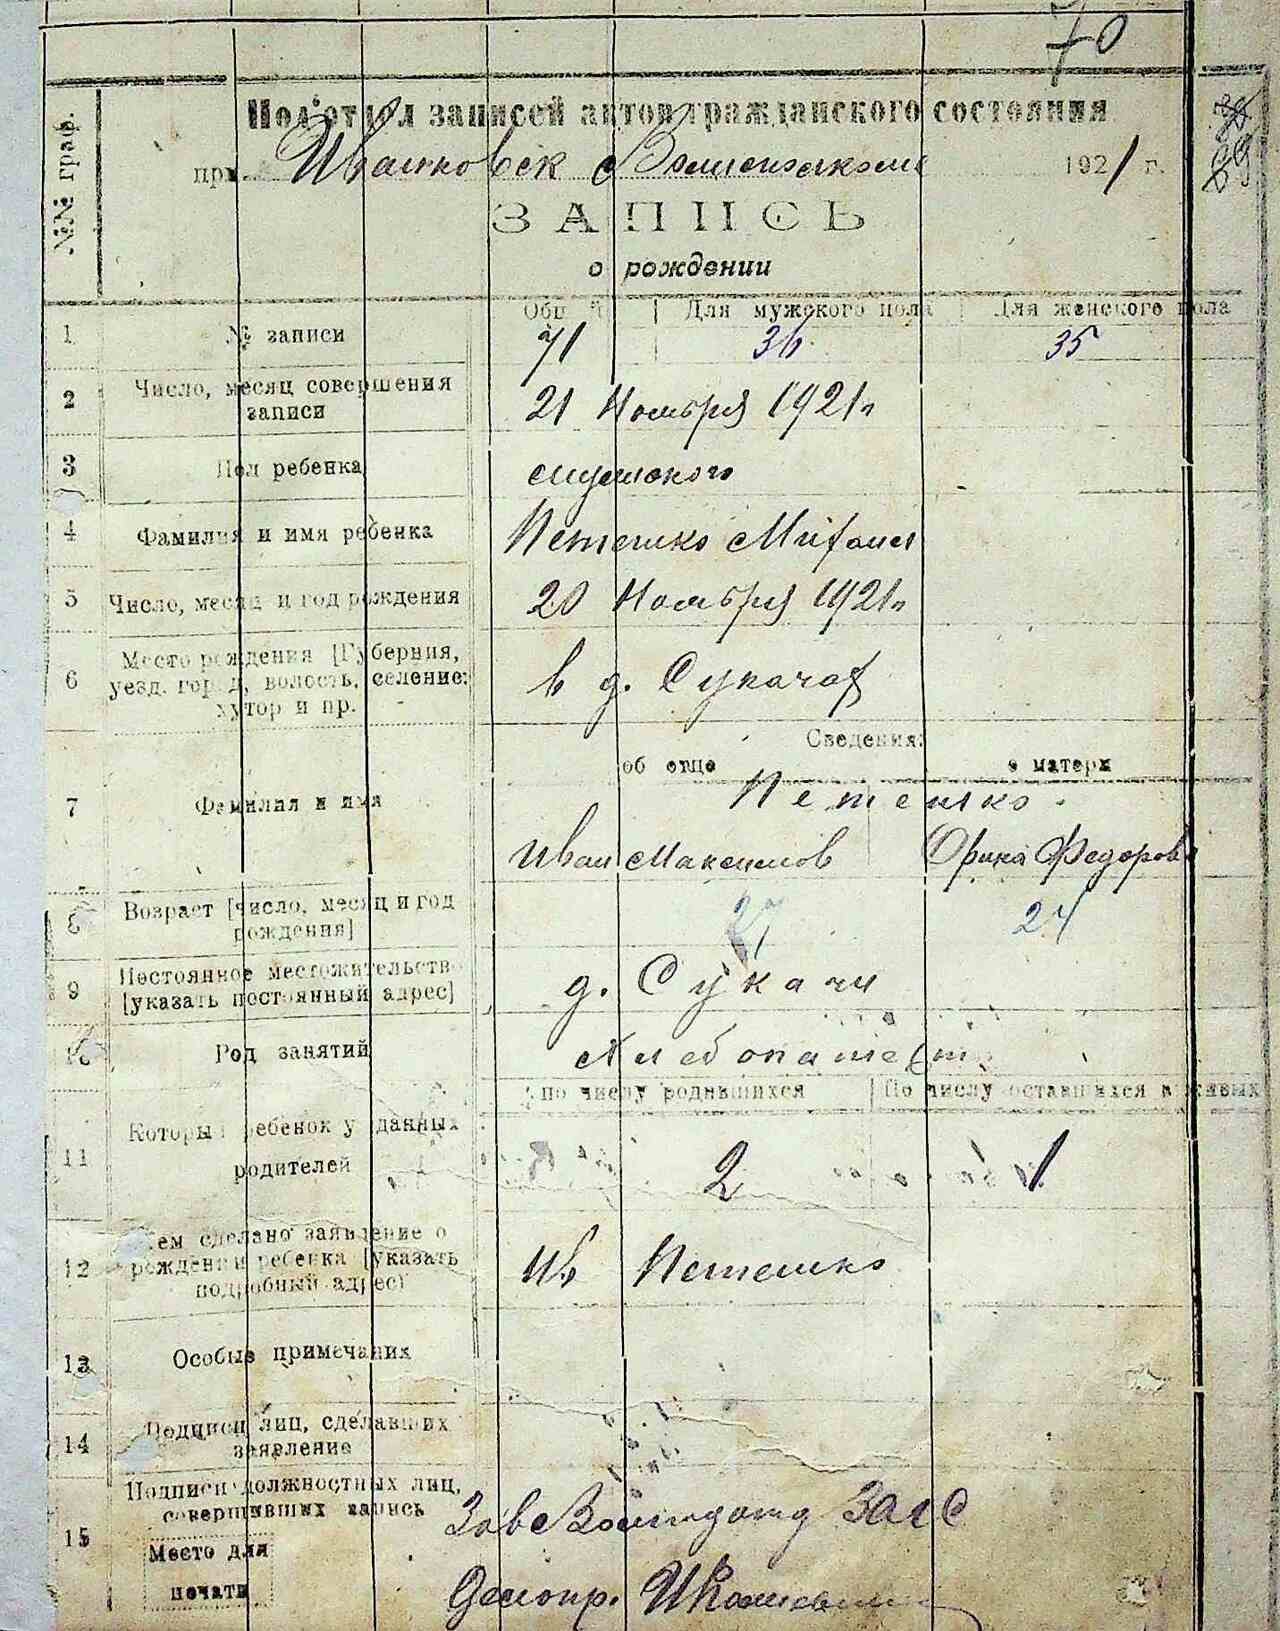 70
Подотдел записей актов гражданского состояния
№№ граф.
при Иванковск Волисполкоме 1921 г.
69
ЗАПИСЬ
о рождении
Общий Для мужского пола Для женского пола
1 № записи 71 36 35
2 Число, месяц совершения
записи 21 Ноября 1921 г
3 Пол ребенка мужского
4 Фамилия и имя ребенка Петешко Михаил
5 Число, месяц и год рождения 20 Ноября 1921 г
6 Место рождения [Губерния,
уезд, город, волость, селение,
хутор и пр. в д. Сукачах
Сведения:
об отце о матери
7 Фамилия и имя Петешко
Иван Максимов Орина Федорова
8 Возраст [число, месяц и год
рождения] 27 24
9 Постоянное местожительство
[указать постоянный адрес] д. Сукачи
10 Род занятий Хлебопашест
по числу родившихся По числу оставшихся в живых
11 Который ребенок у данных
родителей 2 1
12 Кем сделано заявление о
рождении ребенка [указать
подробный адрес] Ив Петешко
13 Особые примечания
14 Подписи лиц, сделавших
заявление
15 Подписи должностных лиц,
совершивших запись
Место для
печати
Делопр.